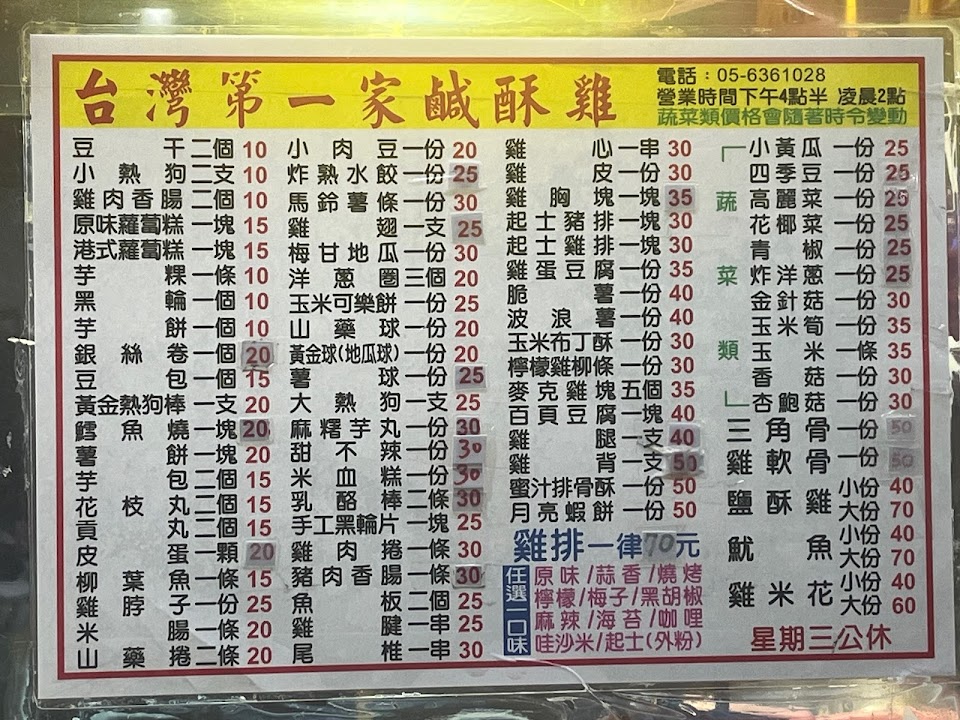 台灣第一家鹹酥雞
電話：05-6361028
營業時間下午4點半 凌晨2點
蔬菜類價格會隨著時令變動
豆干二個10
小熱狗二支10
雞肉香腸二個10
原味蘿蔔糕一塊15
港式蘿蔔糕一塊15
芋粿一條10
黑輪一個10
芋餅一個10
銀絲卷一個20
豆包一個15
黃金熱狗棒一支20
鱈魚燒一塊20
薯餅一塊20
芋包二個15
花枝丸二個15
貢丸二個15
皮蛋一顆20
柳葉魚一條15
雞脖子一份25
米腸一條20
山藥捲二條20
小肉豆一份20
炸熟水餃一份25
馬鈴薯條一份30
雞翅一支25
梅甘地瓜一份30
洋蔥圈三個20
玉米可樂餅一份25
山藥球一份20
黃金球(地瓜球)一份20
薯球一份25
大熱狗一支25
麻糬芋丸一份30
甜不辣一份30
米血糕一份30
乳酪棒二條30
手工黑輪片一塊25
雞肉捲一條30
豬肉香腸一條30
魚板二個25
雞腱一串25
尾椎一串30
雞心一串30
雞皮一份30
雞胸塊一塊35
起士豬排一塊30
起士雞排一塊30
雞蛋豆腐一份35
脆薯一份40
波浪薯一份40
玉米布丁酥一份30
檸檬雞柳條一份30
麥克雞塊五個35
百頁豆腐一塊40
雞腿一支40
雞背一支50
蜜汁排骨酥一份50
月亮蝦餅一份50
雞排一律70元
任選一口味
原味/蒜香/燒烤
檸檬/梅子/黑胡椒
麻辣/海苔/咖哩
哇沙米/起士(外粉)
蔬菜類
小黃瓜一份25
四季豆一份25
高麗菜一份25
花椰菜一份25
青椒一份25
炸洋蔥一份25
金針菇一份30
玉米筍一份35
玉米一條35
香菇一份30
杏鮑菇一份30
三角骨一份50
雞軟骨一份50
鹽酥雞小份40
大份70
魷魚小份40
大份70
雞米花小份40
大份60
星期三公休